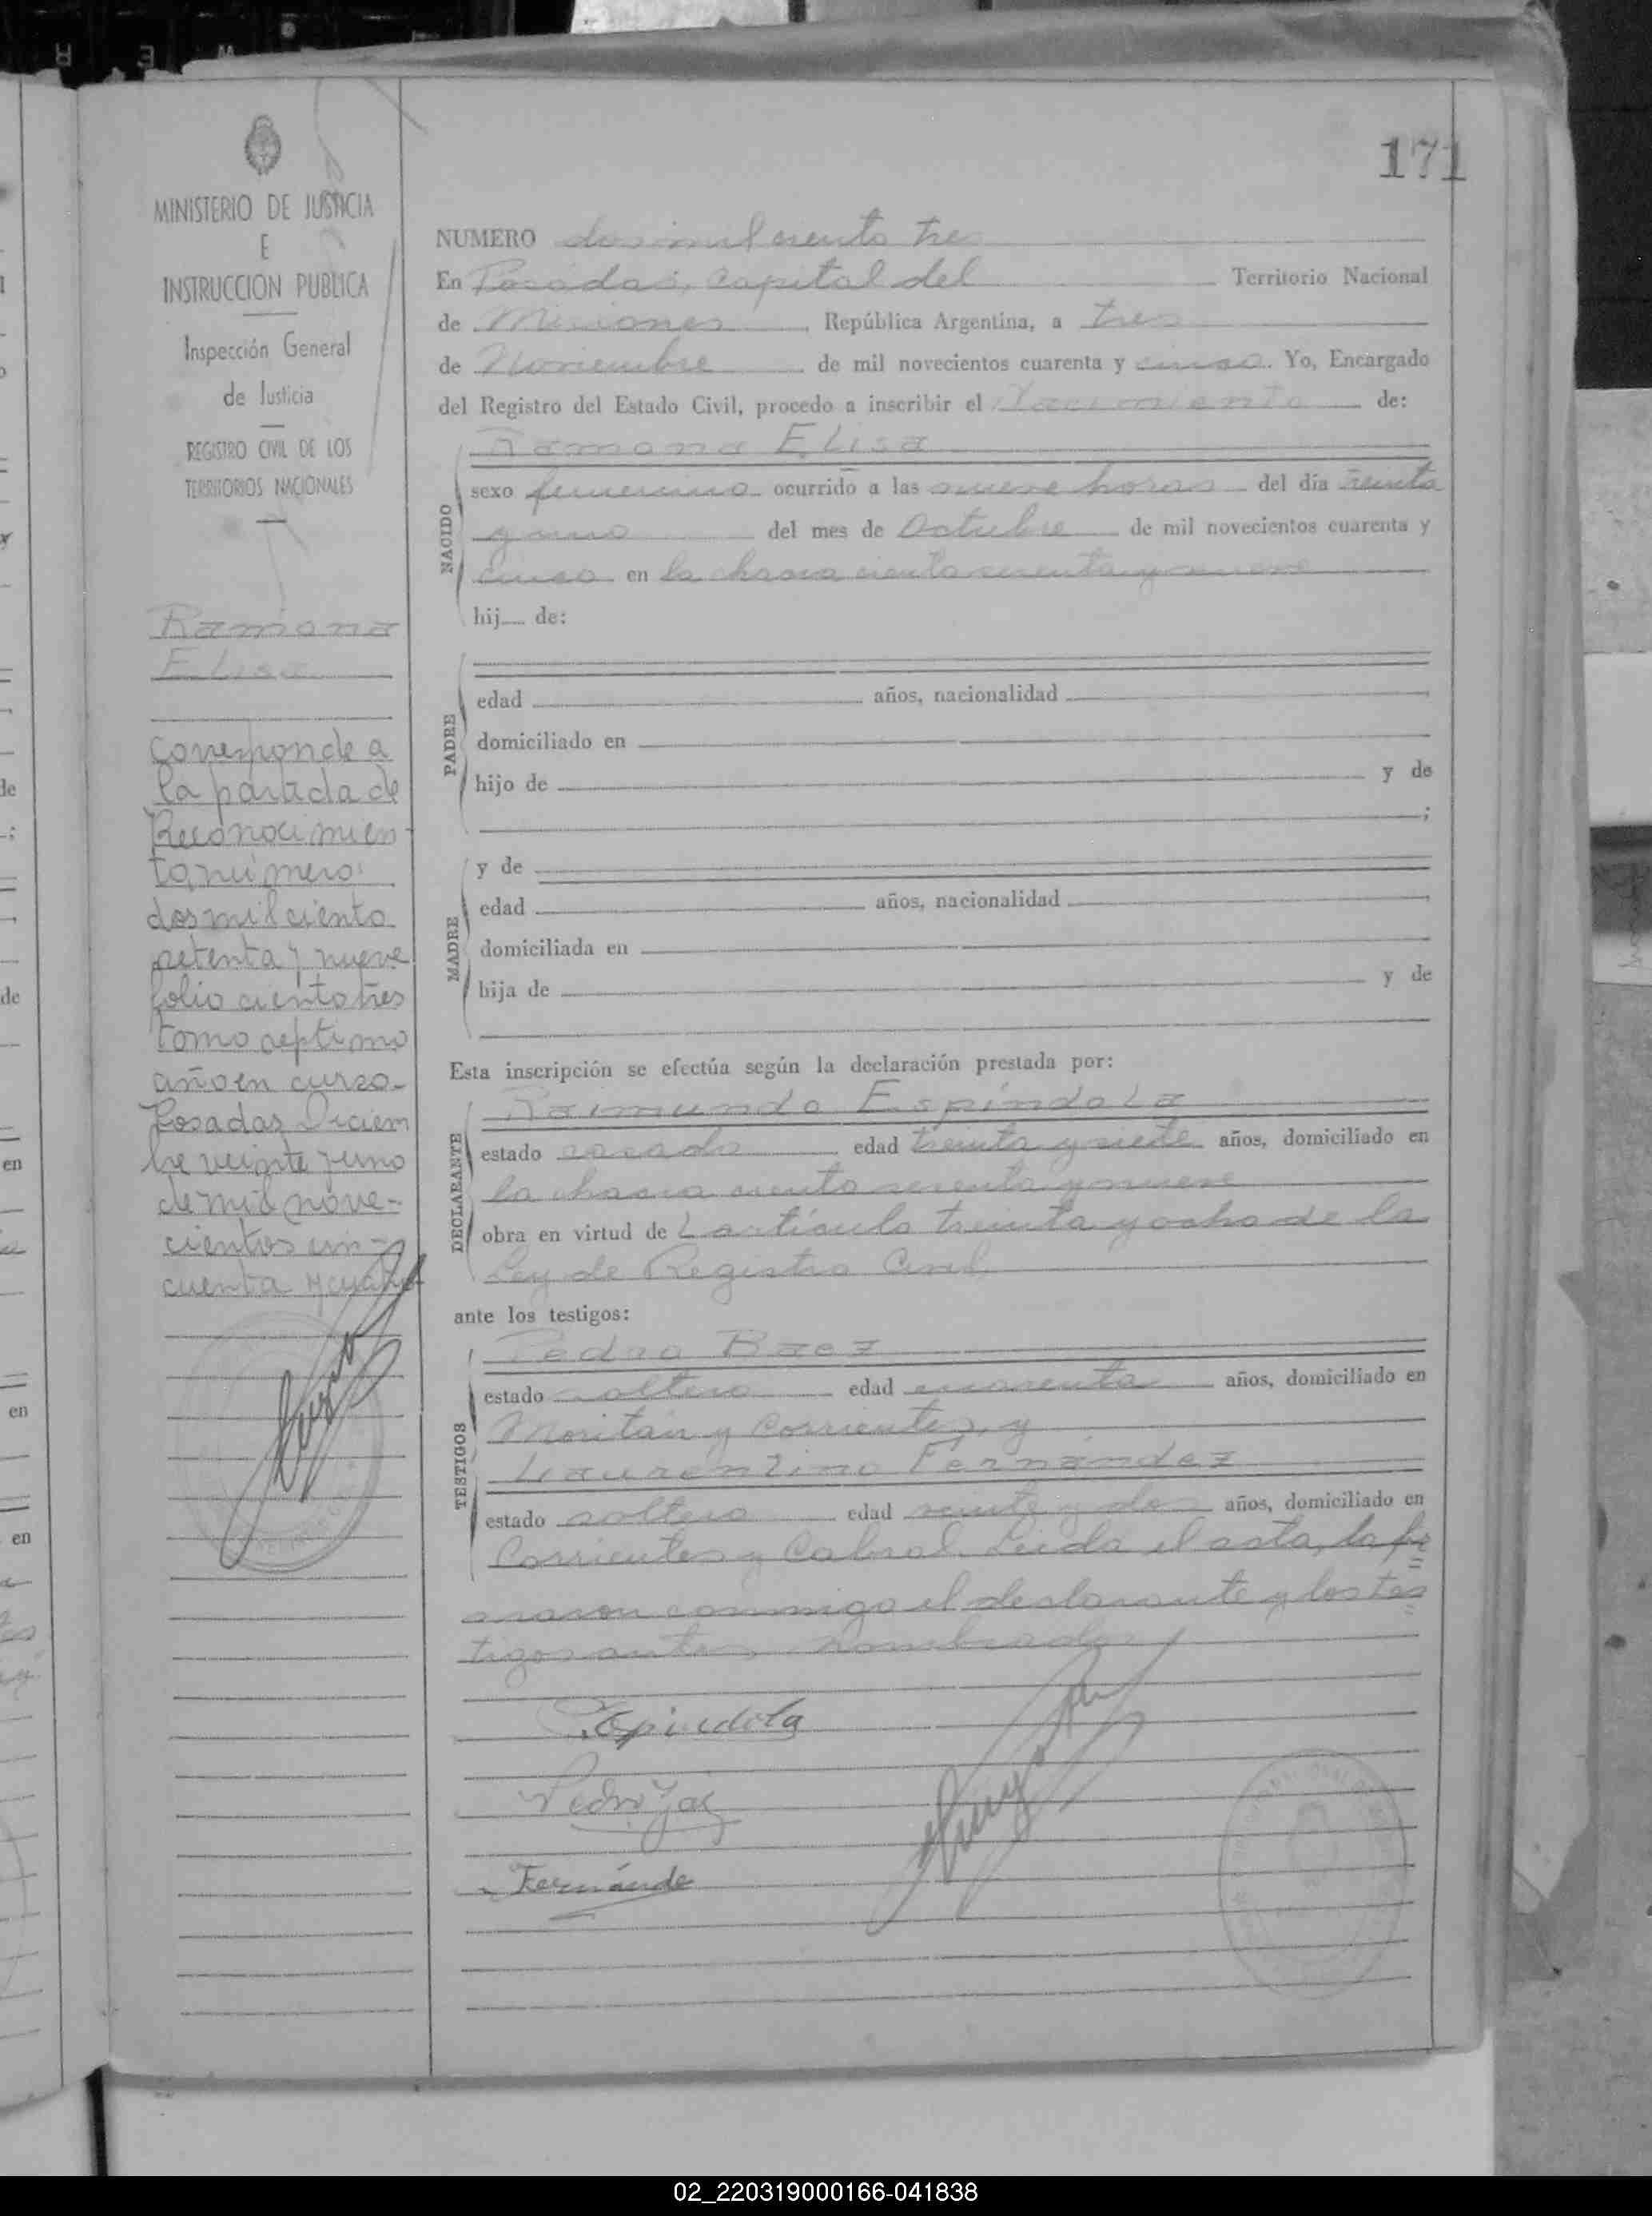 171
MINISTERIO DE JUSTICIA
E
INSTRUCCION PUBLICA
Inspección General
de Justicia
REGISTRO CIVIL DE LOS
TERRITORIOS NACIONALES
Ramona
Elisa
Corresponde a
la partida de
Reconocimien
to número
dos mil ciento
setenta y nueve
folio ciento tres
tomo septimo
año en curso
Posadas Diciem
bre veinte y uno
de mil nove-
cientos cin-
cuenta y cuatro
NUMERO dos mil ciento tres
En Posadas, Capital del Territorio Nacional
de Misiones, República Argentina, a tres
de Noviembre de mil novecientos cuarenta y cinco. Yo, Encargado
del Registro del Estado Civil, procedo a inscribir el Nacimiento de:
Ramona Elisa
NACIDO
sexo femenino ocurrido a las nueve horas del día treinta
y uno del mes de Octubre de mil novecientos cuarenta y
cinco en la chacra ciento y nueve
hij de:
PADRE
edad años, nacionalidad
domiciliado en
hijo de y de
;
MADRE
y de
edad años, nacionalidad
domiciliada en
hija de y de
Esta inscripción se efectúa según la declaración prestada por:
DECLARANTE
Raimundo Espíndola
estado casado edad treinta y siete años, domiciliado en
la chacra ciento y nueve
obra en virtud de l artículo treinta y ocho de la
Ley de Registro Civil,
ante los testigos:
TESTIGOS
Pedro Baez
estado soltero edad cuarenta años, domiciliado en
Moritán y Corrientes, y
Laurentino Fernández
estado soltero edad veinte y dos años, domiciliado en
Corrientes y Cabral. Leida el acta, la fir
maron conmigo el declarante y los tes
tigos antes nombrados
Espindola
Fernánde
02_220319000166-041838